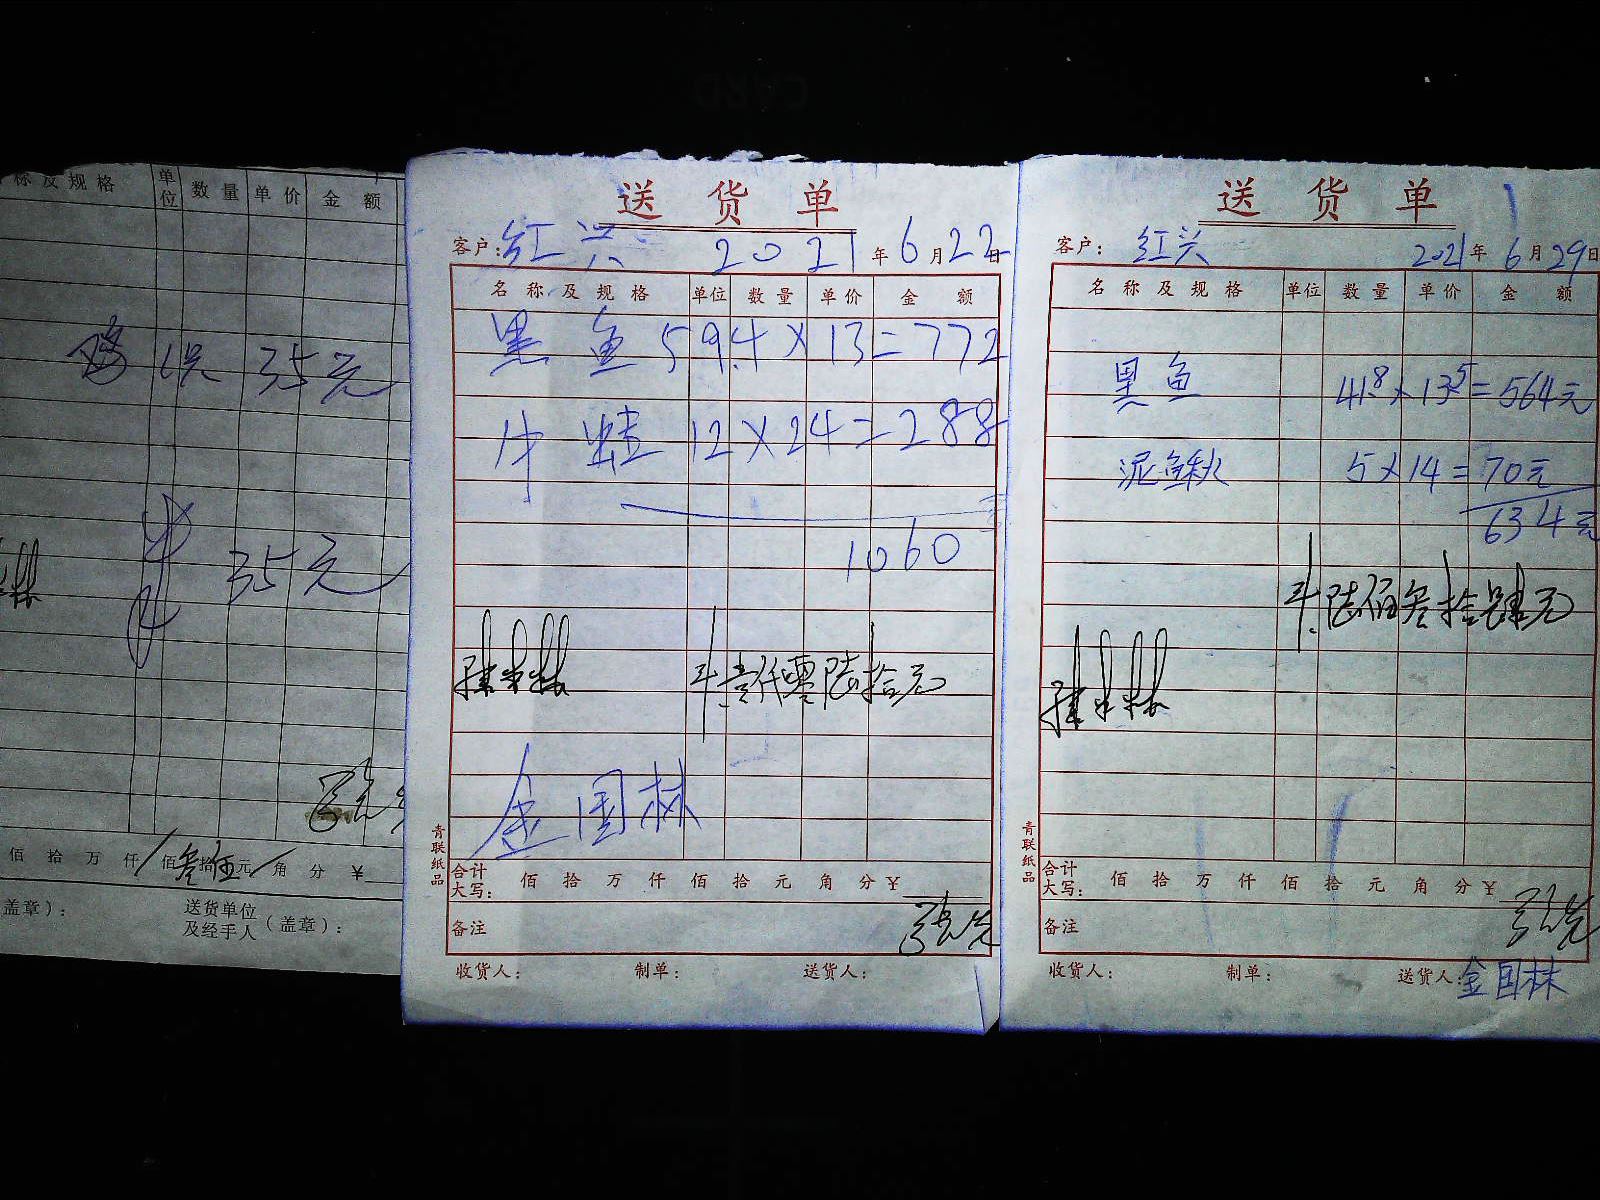 标及规格 单位 数量 单价 金额
35元
35元
佰 拾 万 仟 佰叁拾伍元 角 分 ¥
盖章）：
送货单位
及经手人（盖章）：
送货单
客户：红兴 2021年6月22日
名称及规格 单位 数量 单价 金额
黑鱼 59.4×13=772
牛蛙 12×24=288
1060
计壹仟零陆拾元
金国林
青联纸品
合计
大写： 佰 拾 万 仟 佰 拾 元 角 分 ¥
备注
收货人： 制单： 送货人：
送货单
客户：红兴 2021年6月29日
名称及规格 单位 数量 单价 金额
黑鱼 41.8×13.5=564元
泥鳅 5×14=70元
634元
计陆佰叁拾肆元
青联纸品
合计
大写： 佰 拾 万 仟 佰 拾 元 角 分 ¥
备注
收货人： 制单： 送货人：金国林